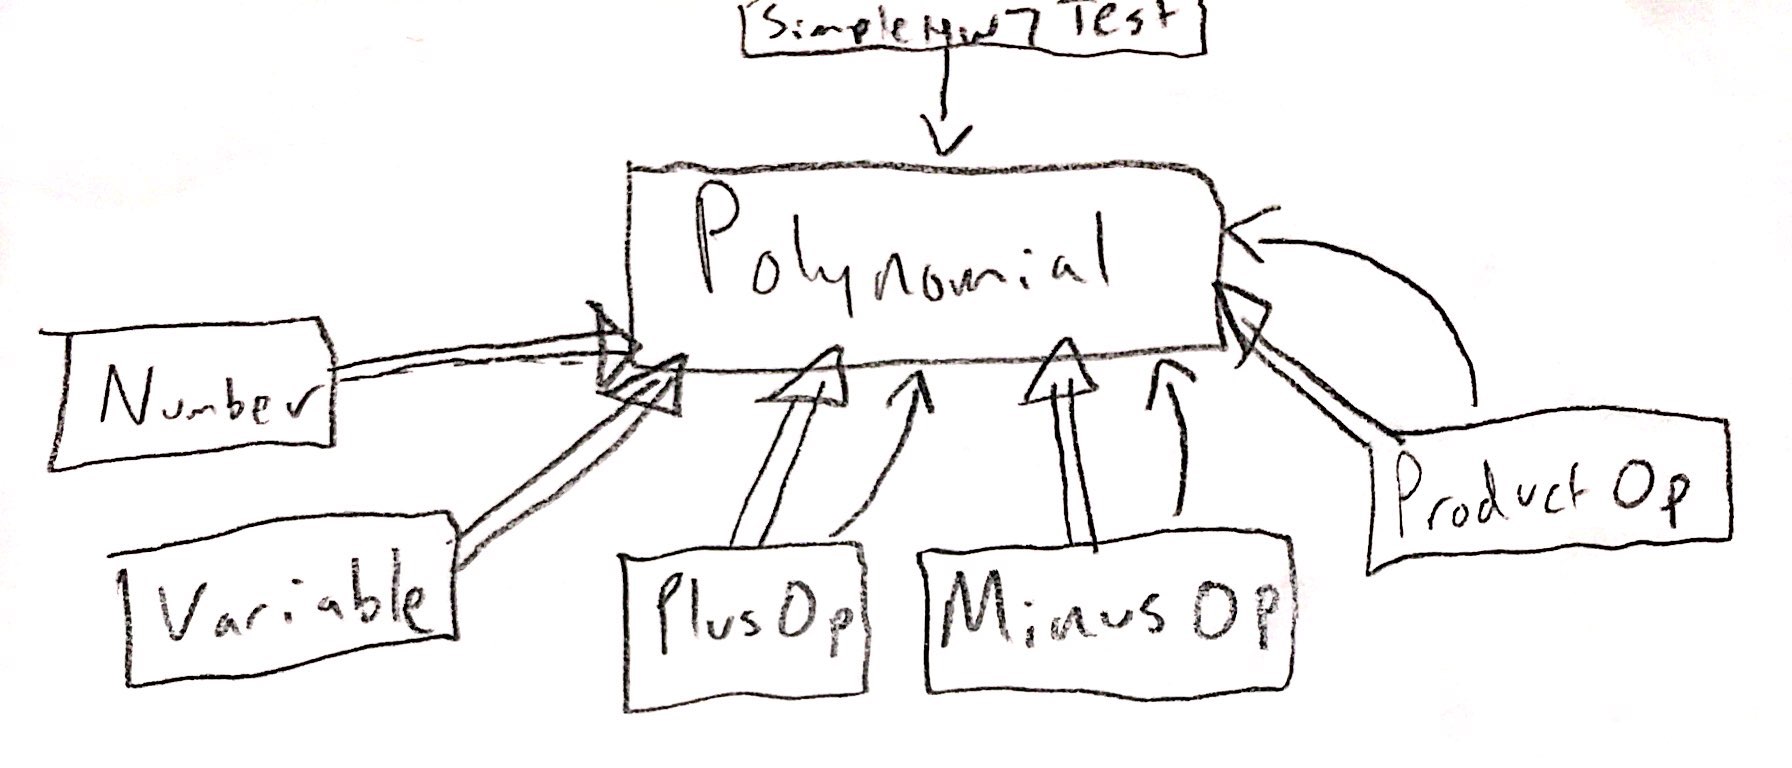 SimpleHW7 Test
Polynomial
Number
Variable
PlusOp
MinusOp
ProductOp